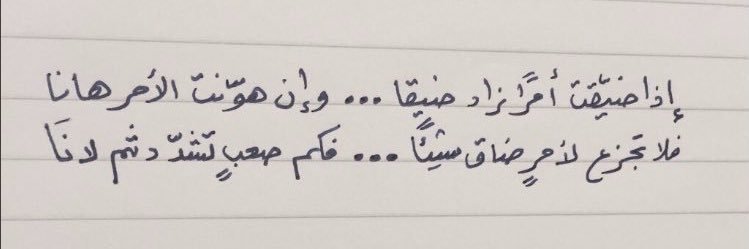 إذا ضيّقت أمرًا زاد ضيقا ... وإن هوّنت الأمر هانا
فلا تجزع لأمرٍ ضاق شيئًا ... فكم صعبٍ تشدّد ثم لانَا